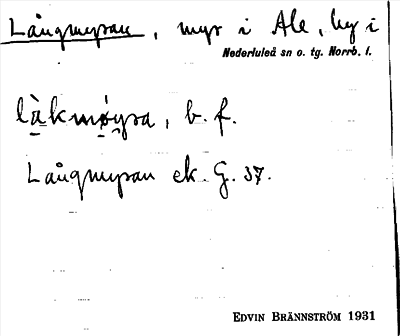 Långmyran, myr i Ale, by i
Nederluleå sn o. tg. Norrb. l.
làkmøyra, b. f.
Långmyran ek. G. 37.
EDVIN BRÄNNSTRÖM 1931